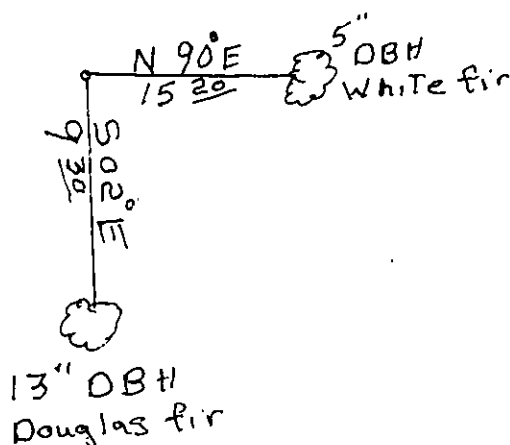 N 90° E
15 20
5" DBH
White fir
S 02° E
9 30
13" DBH
Douglas fir